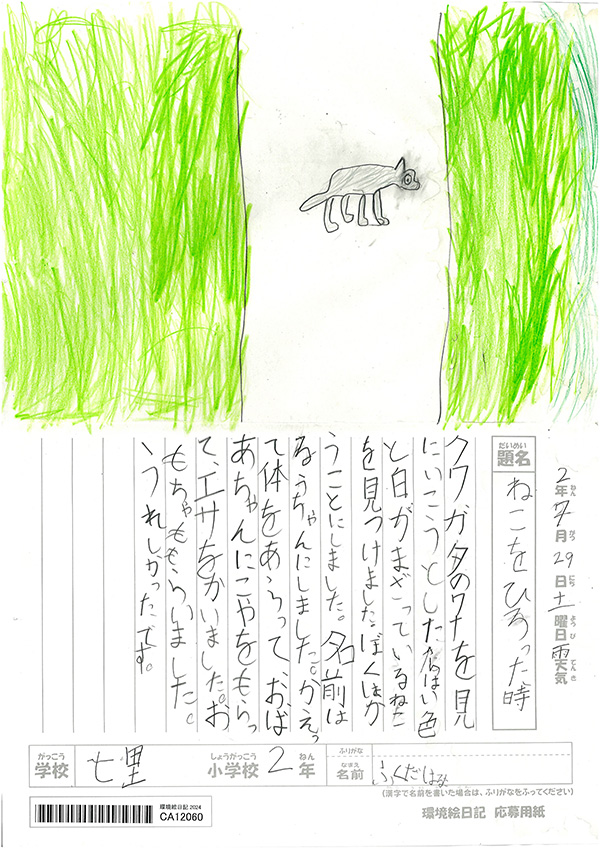 2年7月29日土曜日天気雨
ねん がつ にち ようび てんき
だいめい
題名 ねこをひろった時
クワガタのワナを見
にいこうとしたらはい色
と白がまざっているねこ
を見つけました。ぼくはか
うことにしました。名前は
るうちゃんにしました。かえっ
て体をあらって、おば
あちゃんにこやをもらっ
て、エサをかいました。お
もちゃももらいました。
うれしかったです。
がっこう しょうがっこう ねん ふりがな
学校 七里 小学校 2年
なまえ
名前 ふくだ
(漢字で名前を書いた場合は、ふりがなをふってください)
環境絵日記 2024
CA12060
環境絵日記 応募用紙